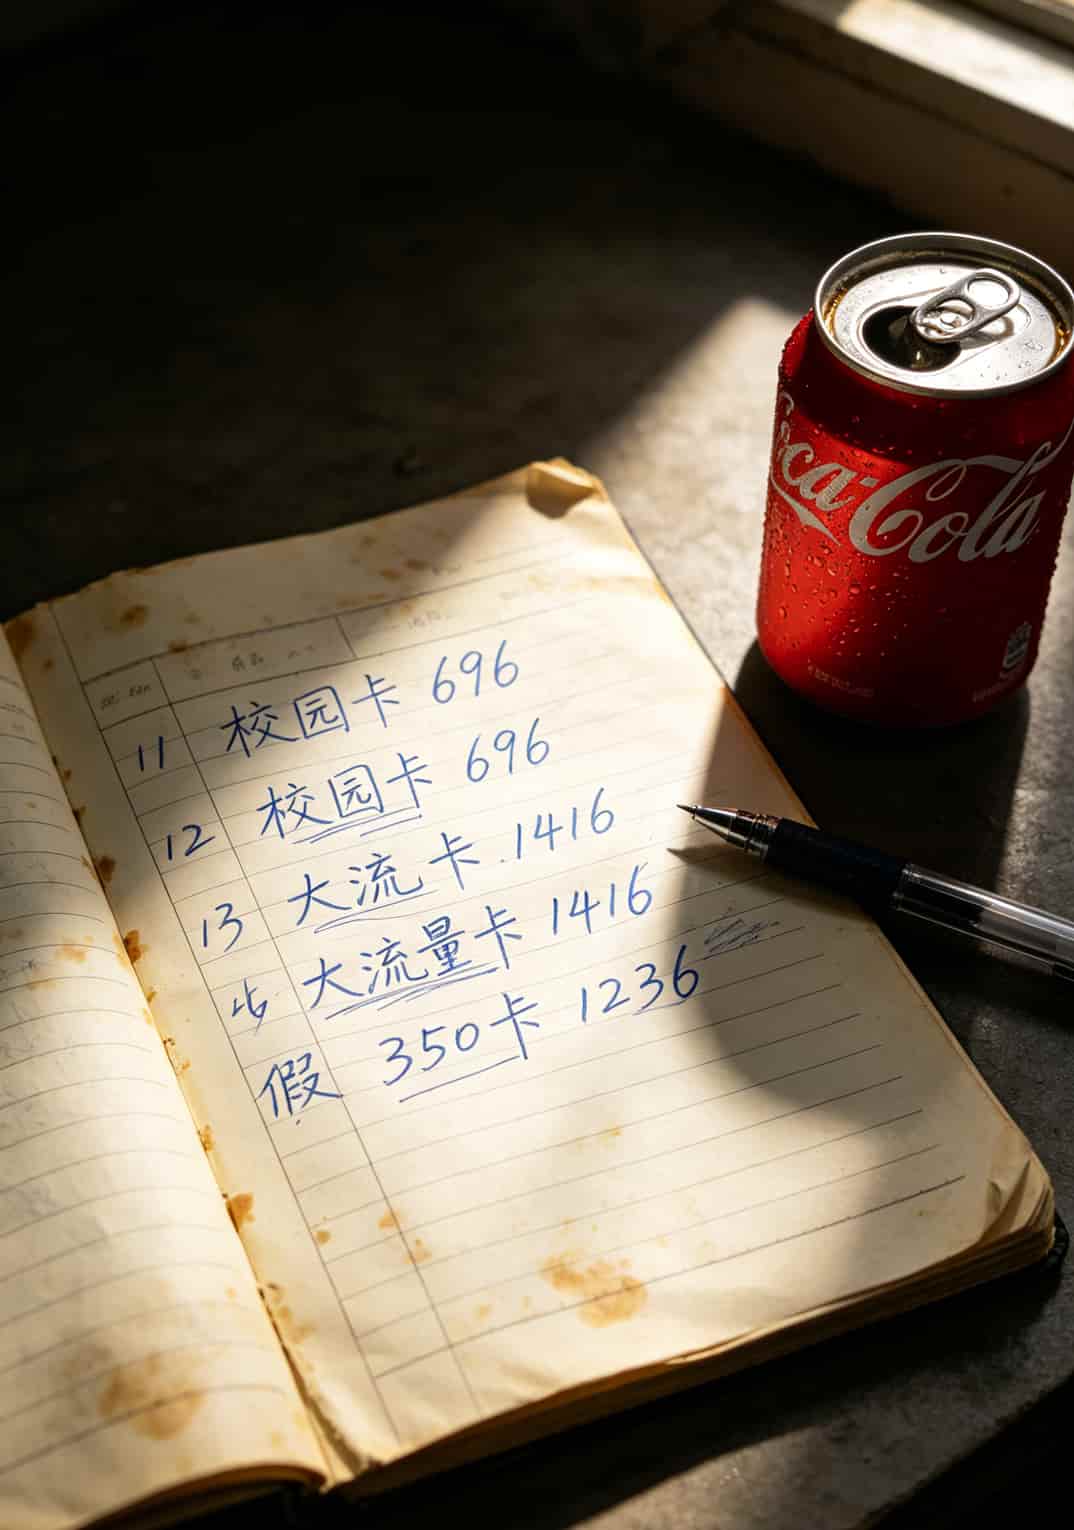 11 校园卡 696
12 校园卡 696
13 大流卡.1416
大流量卡 1416
假 350卡 1236
Coca-Cola